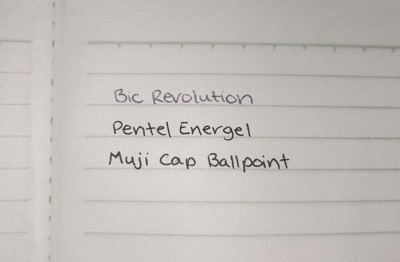 Bic Revolution
Pentel Energel
Muji Cap Ballpoint